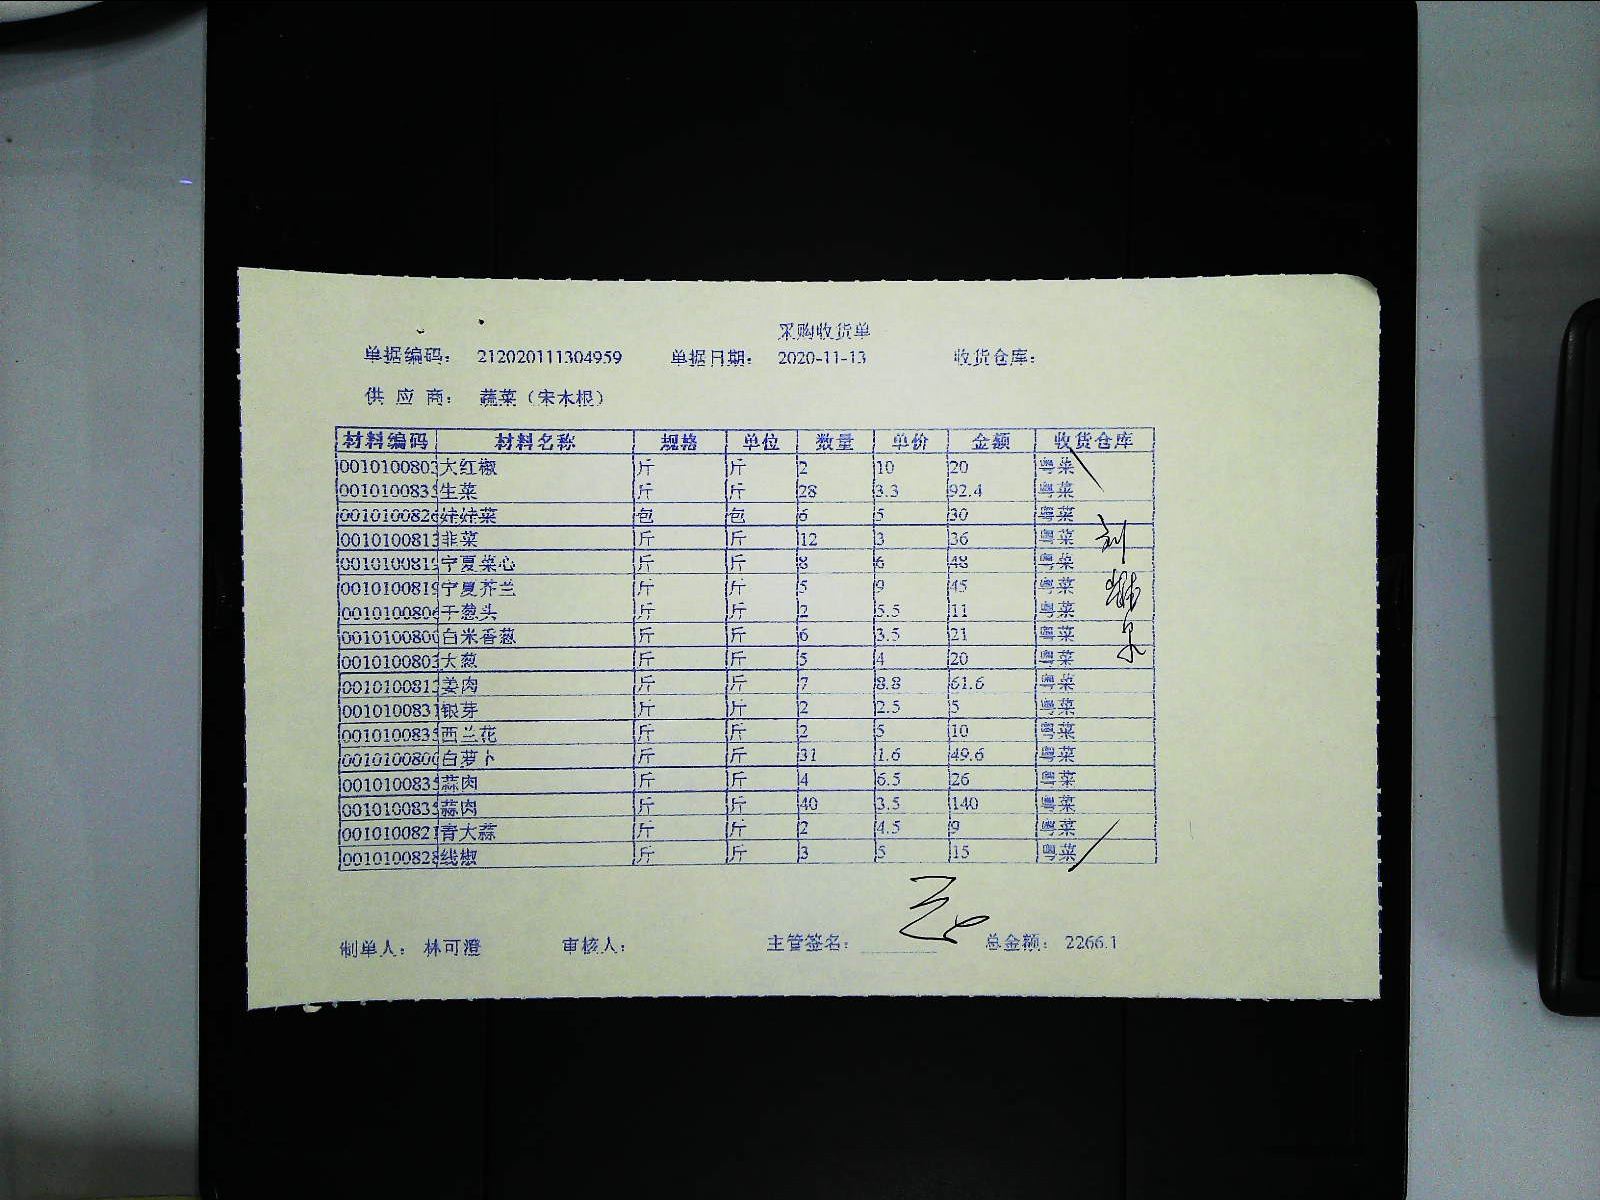 采购收货单
单据编码： 212020111304959 单据日期： 2020-11-13 收货仓库：
供 应 商： 蔬菜（宋木根）
材料编码 材料名称 规格 单位 数量 单价 金额 收货仓库
0010100803 大红椒 斤 斤 2 10 20 粤菜
0010100835 生菜 斤 斤 28 3.3 92.4 粤菜
0010100826 娃娃菜 包 包 6 5 30 粤菜
0010100813 韭菜 斤 斤 12 3 36 粤菜
0010100819 宁夏菜心 斤 斤 8 6 48 粤菜
0010100819 宁夏芥兰 斤 斤 5 9 45 粤菜
0010100806 干葱头 斤 斤 2 5.5 11 粤菜
0010100800 白米香葱 斤 斤 6 3.5 21 粤菜
0010100803 大葱 斤 斤 5 4 20 粤菜
0010100813 姜肉 斤 斤 7 8.8 61.6 粤菜
0010100831 银芽 斤 斤 2 2.5 5 粤菜
0010100835 西兰花 斤 斤 2 5 10 粤菜
0010100800 白萝卜 斤 斤 31 1.6 49.6 粤菜
0010100835 蒜肉 斤 斤 4 6.5 26 粤菜
0010100835 蒜肉 斤 斤 40 3.5 140 粤菜
0010100821 青大蒜 斤 斤 2 4.5 9 粤菜
0010100828 线椒 斤 斤 3 5 15 粤菜
制单人： 林可澄 审核人： 主管签名： 总金额： 2266.1